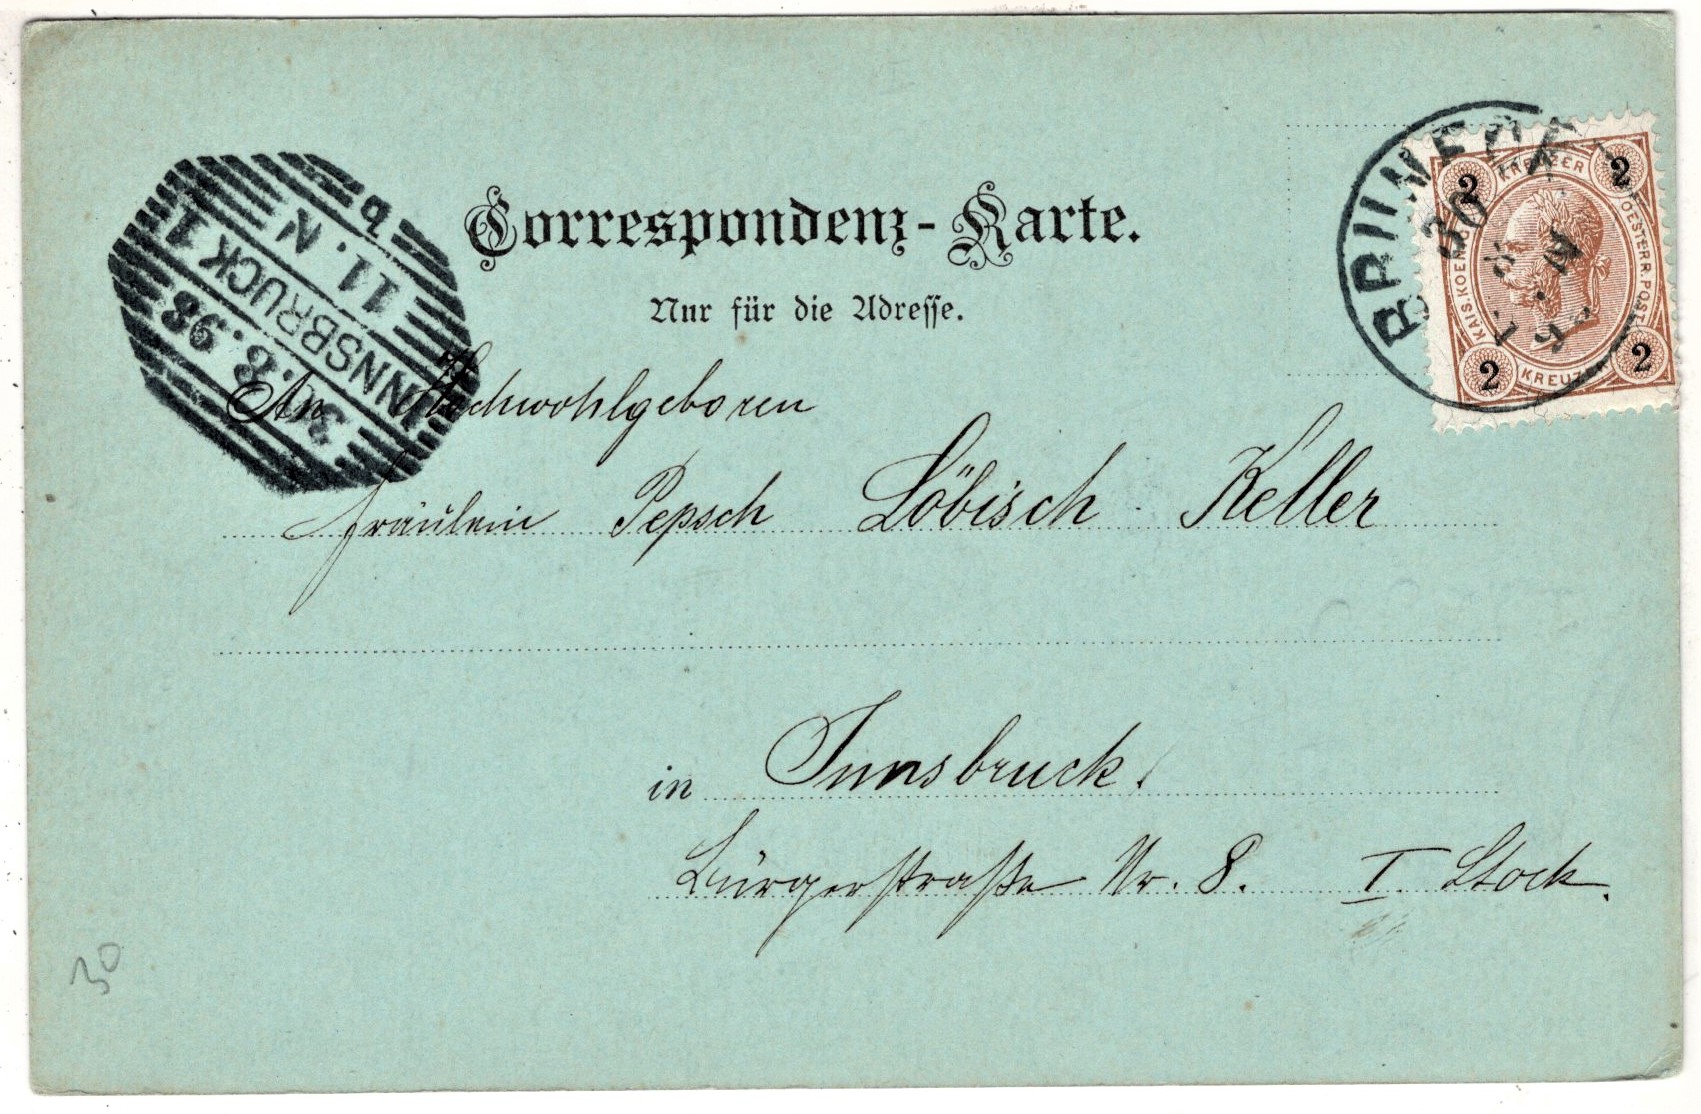 Correspondenz-Karte.
Nur für die Adresse.
INNSBRUCK 1
30.8.98
11.N
b
BRUNECK
30
KAIS. KOENIGL. OESTERR. POST
KREUZER
KREUZER
2
2
2
2
An Hochwohlgeboren
Fräulein Pepsch Löbisch-Keller
in Innsbruck.
Bürgerstraße Nr. 8. I. Stock.
30